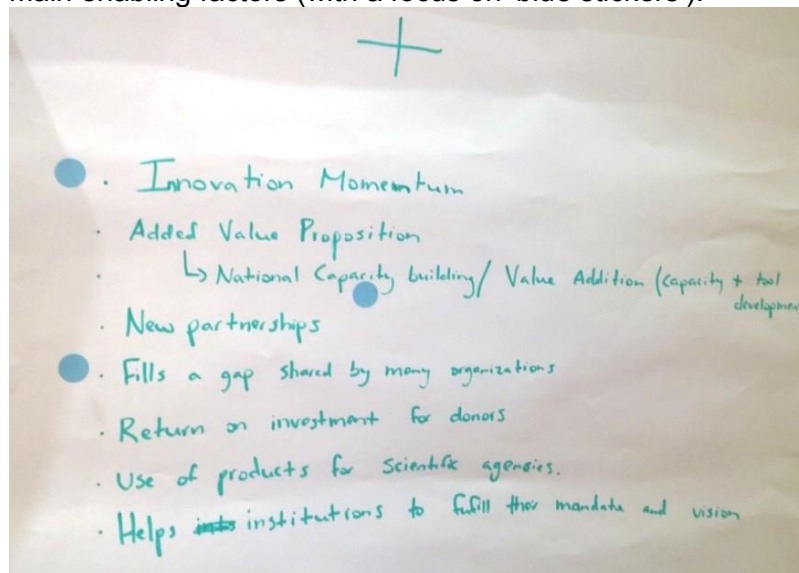 main enabling factors (with a focus on 'blue stickers').
+
· Innovation Momentum
· Added Value Proposition
· ↳ National Capacity building/ Value Addition (Capacity + tool
developmen
· New partnerships
· Fills a gap shared by many organizations
· Return on investment for donors
· Use of products for Scientific agencies.
· Helps institutions to fulfill their mandate and vision